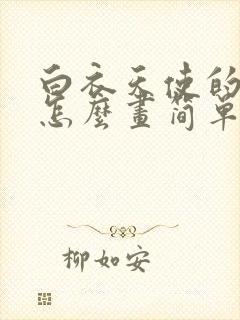 白衣天使的
怎麼畫简單
柳如安